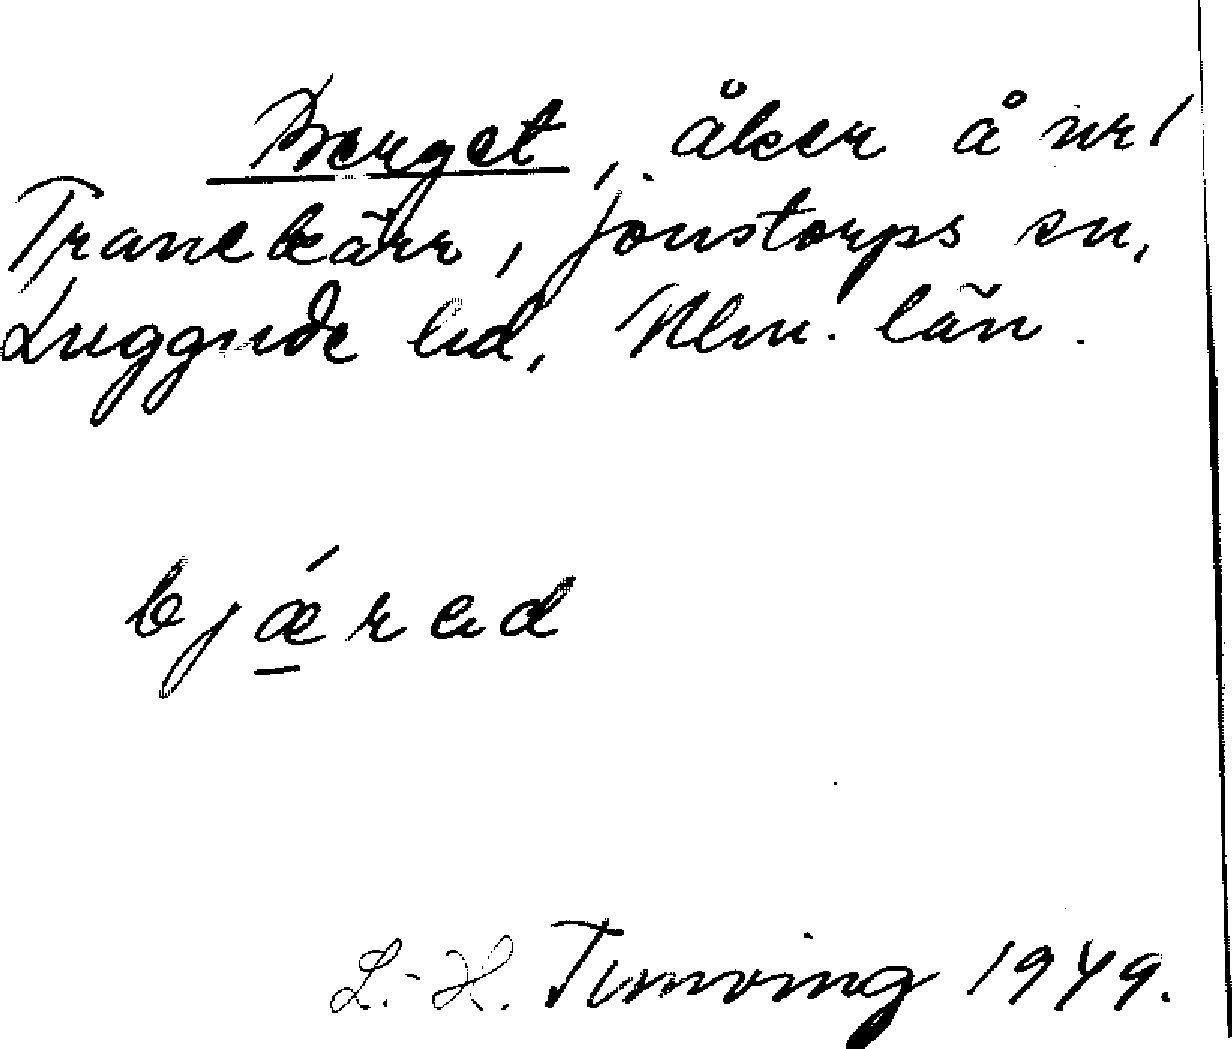 Berget, åker å nr 1
Tranekärr, Jonstorps sn,
Luggude hd, Mlm. län.
bjǽred
L.-H. Timving 1949.